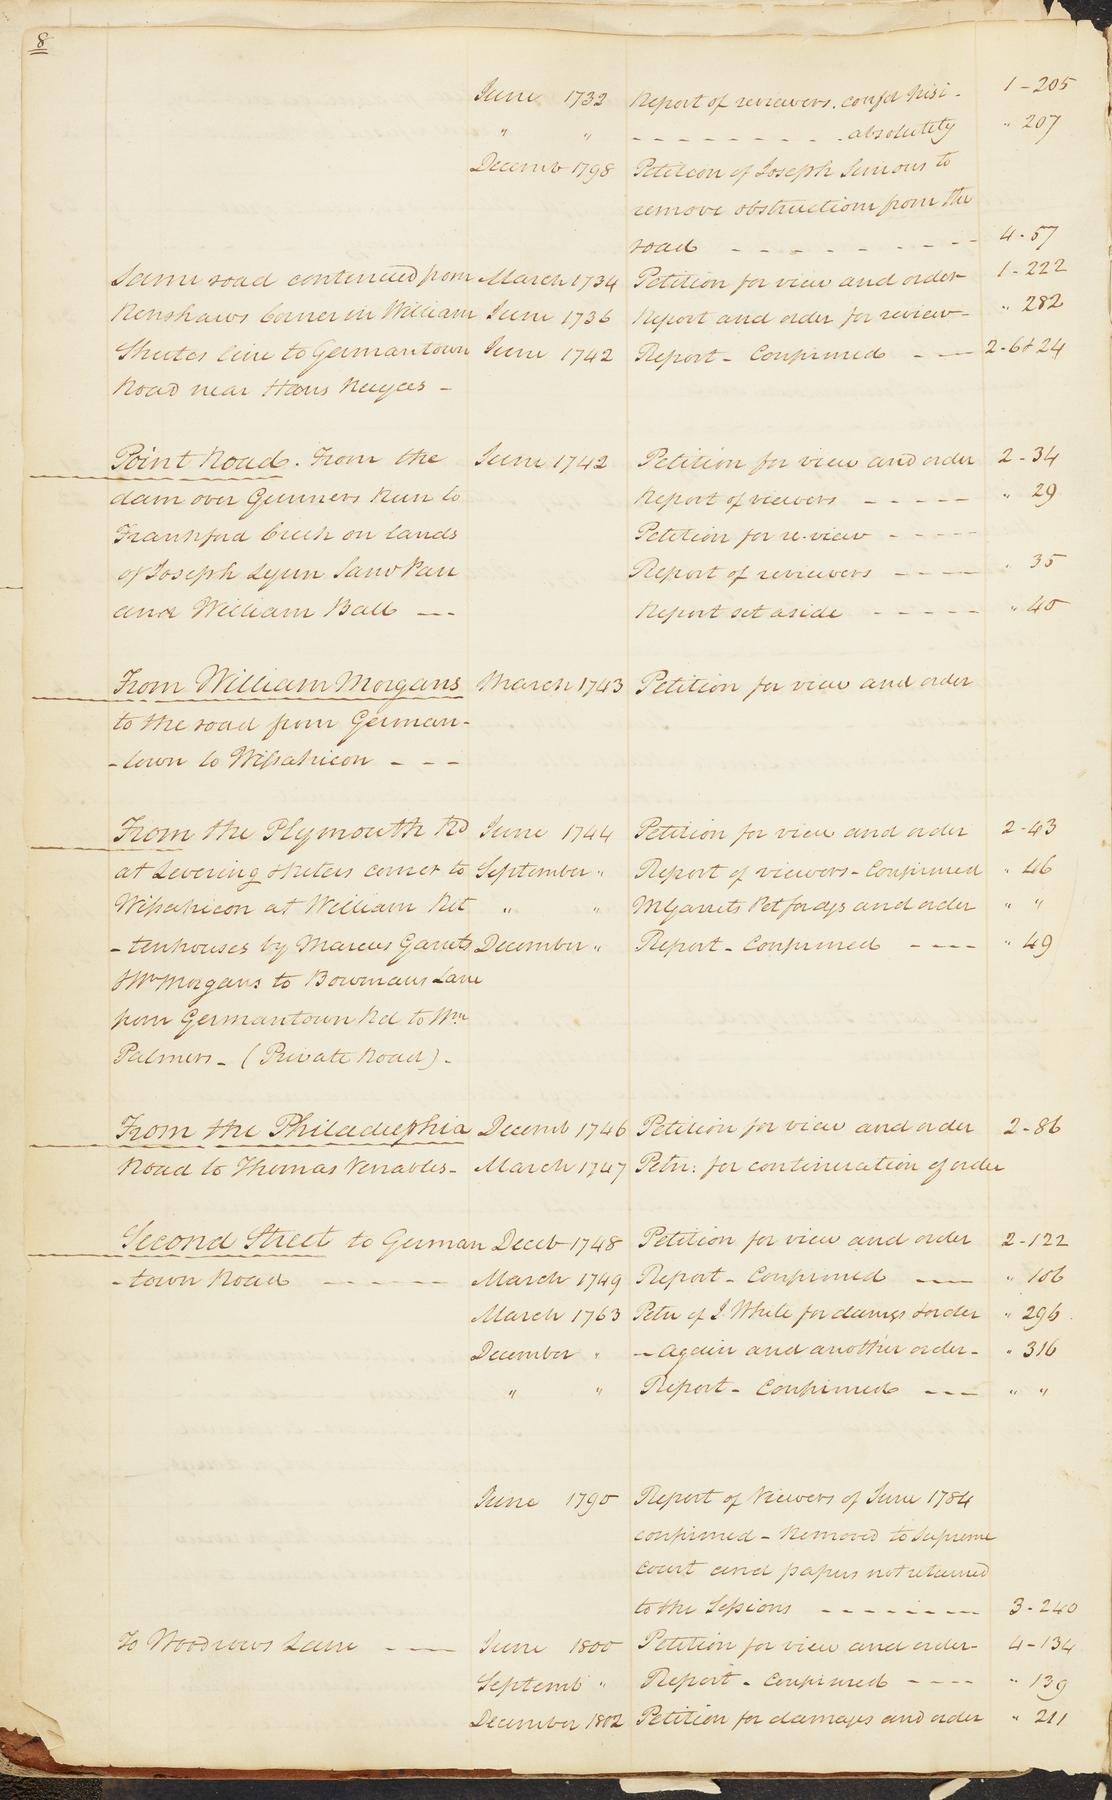 8
June 1732 Report of reviewers. confd Nisi - 1-205
" " - - - - - - - - . absolutely " 207
Decemb 1798 Petition of Joseph Simons to
remove obstructions from the
road - - - - - - - - - 4-57
Same road continued from March 1734 Petition for view and order- 1-222
Renshaws Corner in William June 1736 Report and order for review- " 282
Shutes line to Germantown June 1742 Report - Confirmed - - - 2-6&24
Road near Hans -
Point Road. From the June 1742 Petition for view and order 2-34
dam over Gunners Run to Report of viewers - - - - - " 29
Frankford Creek on lands Petition for re.view - - - - -
of Joseph Lynn Report of reviewers - - - - " 35
and William Ball - - - Report set aside - - - - - " 40
From William Morgans March 1743 Petition for view and order
to the road from German-
-town to Wissahicon - - -
From the Plymouth Rd June 1744 Petition for view and order 2-43
at Levering corner to September " Report of viewers - Confirmed " 46
Wissahicon at William Rit " " M Garrets Pet for dgs and order " "
-tenhouses by Marcus Garrets December " Report - Confirmed - - - - " 49
& Wm Morgans to Bowmans Lane
from Germantown Rd to Wm
Palmers - (Private Road) -
From the Philadelphia Decemb 1746 Petition for view and order 2-86
Road to Thomas Venables- March 1747 Petn: for continuation of order
Second Street to German Deceb 1748 Petition for view and order 2-122
-town Road - - - - - - March 1749 Report - Confirmed - - - " 106
March 1763 Petn of J. White for damgs & order " 296
December " - Again and another order - " 316
" " Report - Confirmed - - - " "
June 1790 Report of Viewers of June 1784
confirmed - Removed to Supreme
Court and papers not returned
to the Sessions - - - - - - - 3-240
To Woodrows Lane - - - June 1800 Petition for view and order- 4-134
Septemb " Report - Confirmed - - - - " 139
December 1802 Petition for damages and order " 211